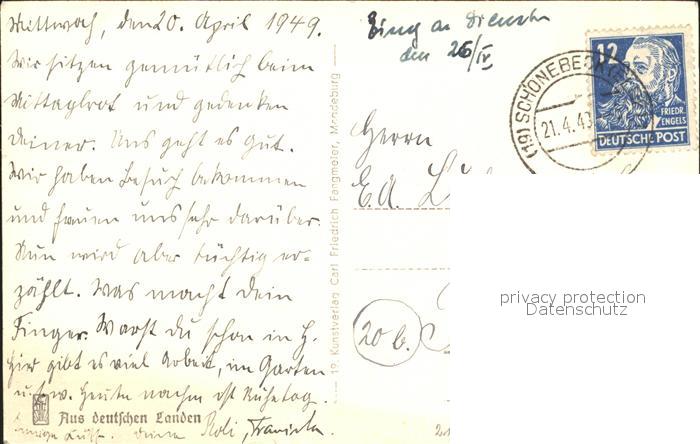 Mittwoch, den 20. April 1949.
Wir sitzen gemütlich beim
Mittagbrot und gedenken
deiner. Uns geht es gut.
Wir haben Besuch bekommen
und freuen uns sehr darüber.
Nun wird aber tüchtig er-
zählt. Was macht dein
Finger. Warst du schon in H.
Hier gibt es viel Arbeit, im Garten
u.s.w. Heute nachm ist Ruhetag.
Aus deutschen Landen
deine Roli,
19. Kunstverlag Carl Friedrich Fangmeier, Magdeburg
den 26/IV
(19) SCHÖNEBECK
21.4.49
12
FRIEDR.
ENGELS
DEUTSCHE POST
Herrn
E.A.
20 b.
privacy protection
Datenschutz